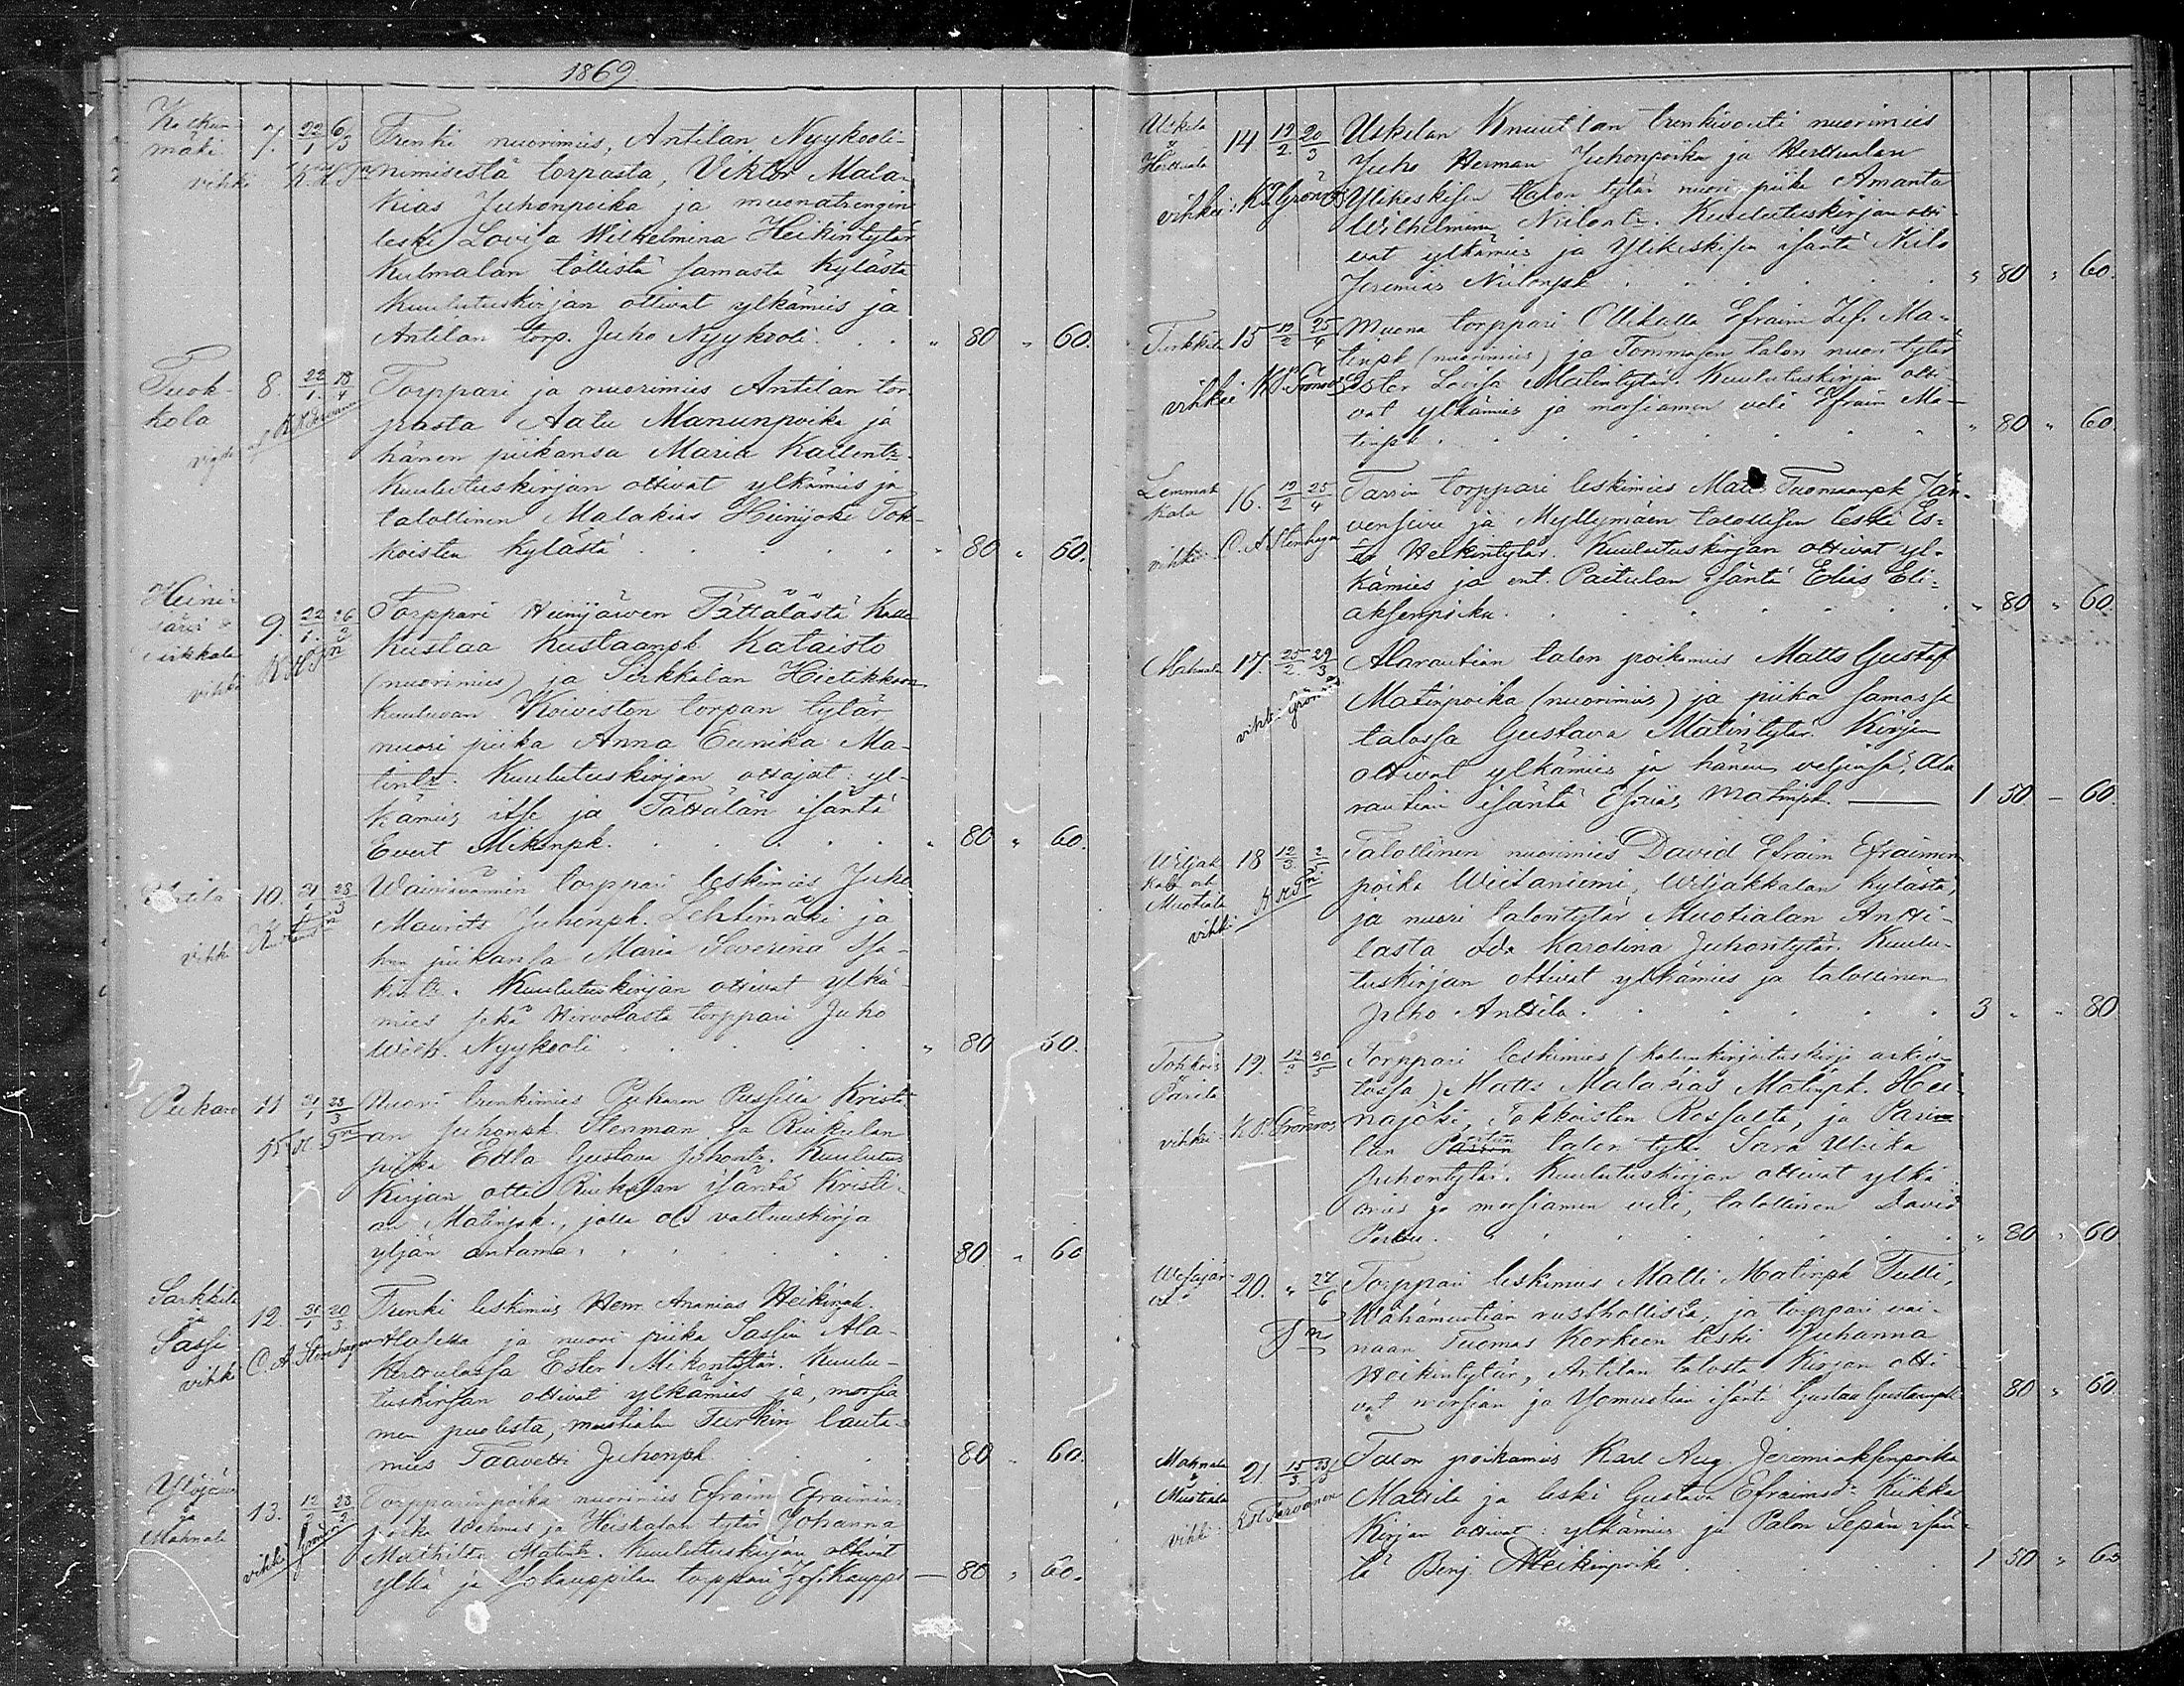 1869.
7. 22/1 6/3 Trenki nuorimies, Antilan Nyykooli-
mäki
vihki K. H. nimisestä torpasta, Viktor Mala-
kias Juhonpoika ja muonatrengin
leski Lovisa Wilhelmina Heikintytär
Kulmalan töllistä samasta kylästä
Kuulutuskirjan ottivat ylkämies ja
Antilan torp. Juho Nyykooli . . . " 80 " 60.
Tuok-
kola 8. 22/1. 18/4 Torppari ja nuorimies Antilan tor-
pasta Aatu Manunpoika ja
hänen piikansa Maria Kallentr.
Kuulutuskirjan ottivat ylkämies ja
talollinen Malakias Heinijoki Tok-
koisten kylästä . . . . . " 80 " 60.
Heini-
järvi &
Sirkkala 9. 22/1. Torppari Heinijärwen Tättälästä Kalle
vihki K H Tn Kustaa Kustaanpk Kataisto
(nuorimies) ja Sirkkalan Hietikkoon
kuuluvan Koiviston torpan tytär
nuori piika Anna Eunika Ma-
tintr. Kuulutuskirjan ottajat: yl-
kämies itse ja Tättälän isäntä
Evert Mikinpk. . . . . " 80 " 60.
Antila 10. 31/1 28/3 torppari leskimies Juho
vihki Maurits Juhonpk. Lehtimäki ja
hän piikansa Maria Severina Isa-
kintr. Kuulutuskirjan ottivat ylkä-
mies sekä torppari Juho
Wilh. Nyykooli . . . . " 80 60.
Pukara 11 31/1 28/3 Nuori trenkimies Pukaran Pussilla Kristi-
K. H. Tn an Juhonpk. Stenman ja Riukulan
piika Edla Gustava Juhontr. Kuulutus
Kirjan otti Riukulan isäntä Kristi-
an Matinpk., jolla oli valtuuskirja
yljän antama . . . . 80 " 60
Sarkkila
ja
Sassi 12. 31/1 20/3. Trenki leskimies Henr. Ananias Heikinpk.
vihki O. A. Stenhagen ja nuori piika Sassin Ala-
Herttualassa Ester Mikontytär. Kuulu-
tuskirjan ottivat ylkämies ja, morsia
men puolesta, Turkin lauta-
mies Taavetti Juhonpk. . . . 80 " 60.
Ylöjärvi
ja
Mahnala 13. 12/2 28/2 Torpparinpoika nuorimies Efraim Efraimin-
poika Wehmas ja Heiskalan tytär Johanna
vihki Mathilda Matintr. Kuulutuskirjan ottivat
ylkä ja Yokauppilan torppari Jos. Kauppi — 80 " 60.
Uskela
&
Herttuala 14 19/2. 20/3 Uskelan Knuutilan trenkivouti nuorimies
Juho Herman Juhonpoika ja Herttualan
vihkei: K P Grönros Ylikeskisen talon tytär nuori piika Amanta
Wilhelmina Niilontr. Kuulutuskirjan otti-
vat ylkämies ja Ylikeskisen isäntä Niilo
Jeremias Niilonpk . . . " 80 " 60.
Turkkila 15 19/2 25/4 Muona torppari Ollikalla Efraim Jos. Ma-
tinpk (nuorimies) ja Tommosen talon nuori tytär
vihkei K P. Grönros Ester Lovisa Matintytär. Kuulutuskirjan otti-
vat ylkämies ja morsiamen veli Efraim Ma-
tinpk . . . . . . " 80 " 60.
Lemmak-
kala 16. 19/2 25/4 Tarsin torppari leskimies Matti Tuomaanpk Jär-
vensivu ja Myllymäen talollisen leski Es-
vihki C. A Stenhagen ter Heikintytär. Kuulutuskirjan ottivat yl-
kämies ja ent. Paitulan isäntä Elias Eli-
aksenpoika . . . . . " 80 " 60.
Mahnala 17. 25/2. 29/3 Alarautian talon poikamies Matts Gustaf
vihki Grönros Matinpoika (nuorimies) ja piika samassa
talossa Gustava Matintytär. Kirjan
ottivat ylkämies ja hänen veljensä, Ala
rautian isäntä Esaias Matinpk. — 1 50 — 60.
Wiljak-
kala 18 12/3. 2/5 Talollinen nuorimies David Efraim Efraimin
Muotiala
vihki K H Tn poika Wiitaniemi, Wiljakkalan kylästä,
ja nuori talontytär Muotialan Antti-
lasta Ida Karolina Juhontytär. Kuulu-
tuskirjan ottivat ylkämies ja talollinen
Juho Anttila. . . . . . 3 " " 80
Tokkois
&
Parila 19. 30/5 Torppari leskimies (kalunkirjoituskirja arkis-
tossa) Matts Malakias Matinpk. Hei-
vihki K. P. Grönros najoki, Tokkoisten Rossalta, ja Pari-
lan talon tytr Sara Ulrika
Juhontytär. Kuulutuskirjan ottivat ylkä-
mies ja morsiamen veli, talollinen David
. . . . . . " 80 " 60
Wesajär-
vi 20. " 27/6 Torppari leskimies Matti Matinpk Tulli,
Tn Wähämuotian rusthollista, ja torppari vai-
naan Tuomas Korkeen leski Juhanna
Heikintytär, Antilan talosta Kirjan otti-
vat morsian ja Yomuotian isäntä Gustaa Gustaanpk 80 " 60
Mahnala
&
Muotiala 21. 15/3. Talon poikamies Karl Aug. Jeremiaksenpoika
vihki: K H Tarvonen Mattila ja leski Gustava Efraimsdr Kiikka
Kirjan ottivat: ylkämies ja Palon Sepän isän-
tä Benj. Heikinpoika . . . . 1 50 " 60